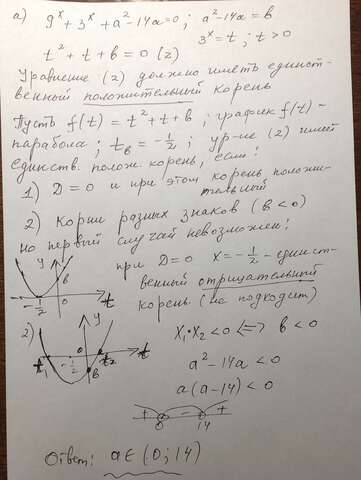 а) 9^x + 3^x + a² - 14a = 0 ; a² - 14a = в
3^x = t ; t > 0
t² + t + в = 0 (2)
Уравнение (2) должно иметь единст-
венный положительный корень
Пусть f(t) = t² + t + в ; график f(t) -
парабола ; t_в = -1/2 ; ур-ие (2) имеет
единств. полож. корень, если:
1) D = 0 и при этом корень положи-
тельный
2) Корни разных знаков (в < 0)
но первый случай невозможен:
при D = 0 x = -1/2 - единст-
венный отрицательный
корень (не подходит)
y
-1/2 0 t
2) y
t₁ -1/2 0 t₂ t
в
x₁·x₂ < 0 <=> в < 0
a² - 14a < 0
a(a - 14) < 0
+ - +
0 14
Ответ: a ∈ (0; 14)